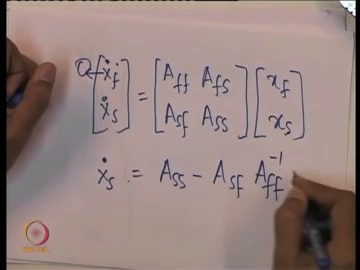 [ẋ_f ẋ_s] = [A_ff A_fs A_sf A_ss] [x_f x_s]
ẋ_s = A_ss - A_sf A_ff^-1
NPTEL